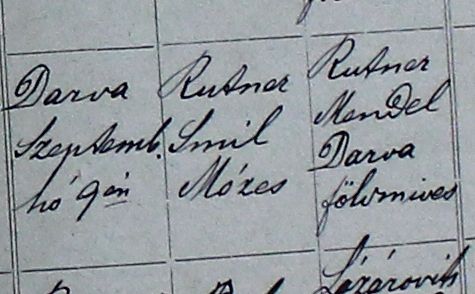 Darva
Szeptemb.
hó 9én
Rutner
Smil
Mózes
Rutner
Mendel
Darva
földmives
Lázárovits